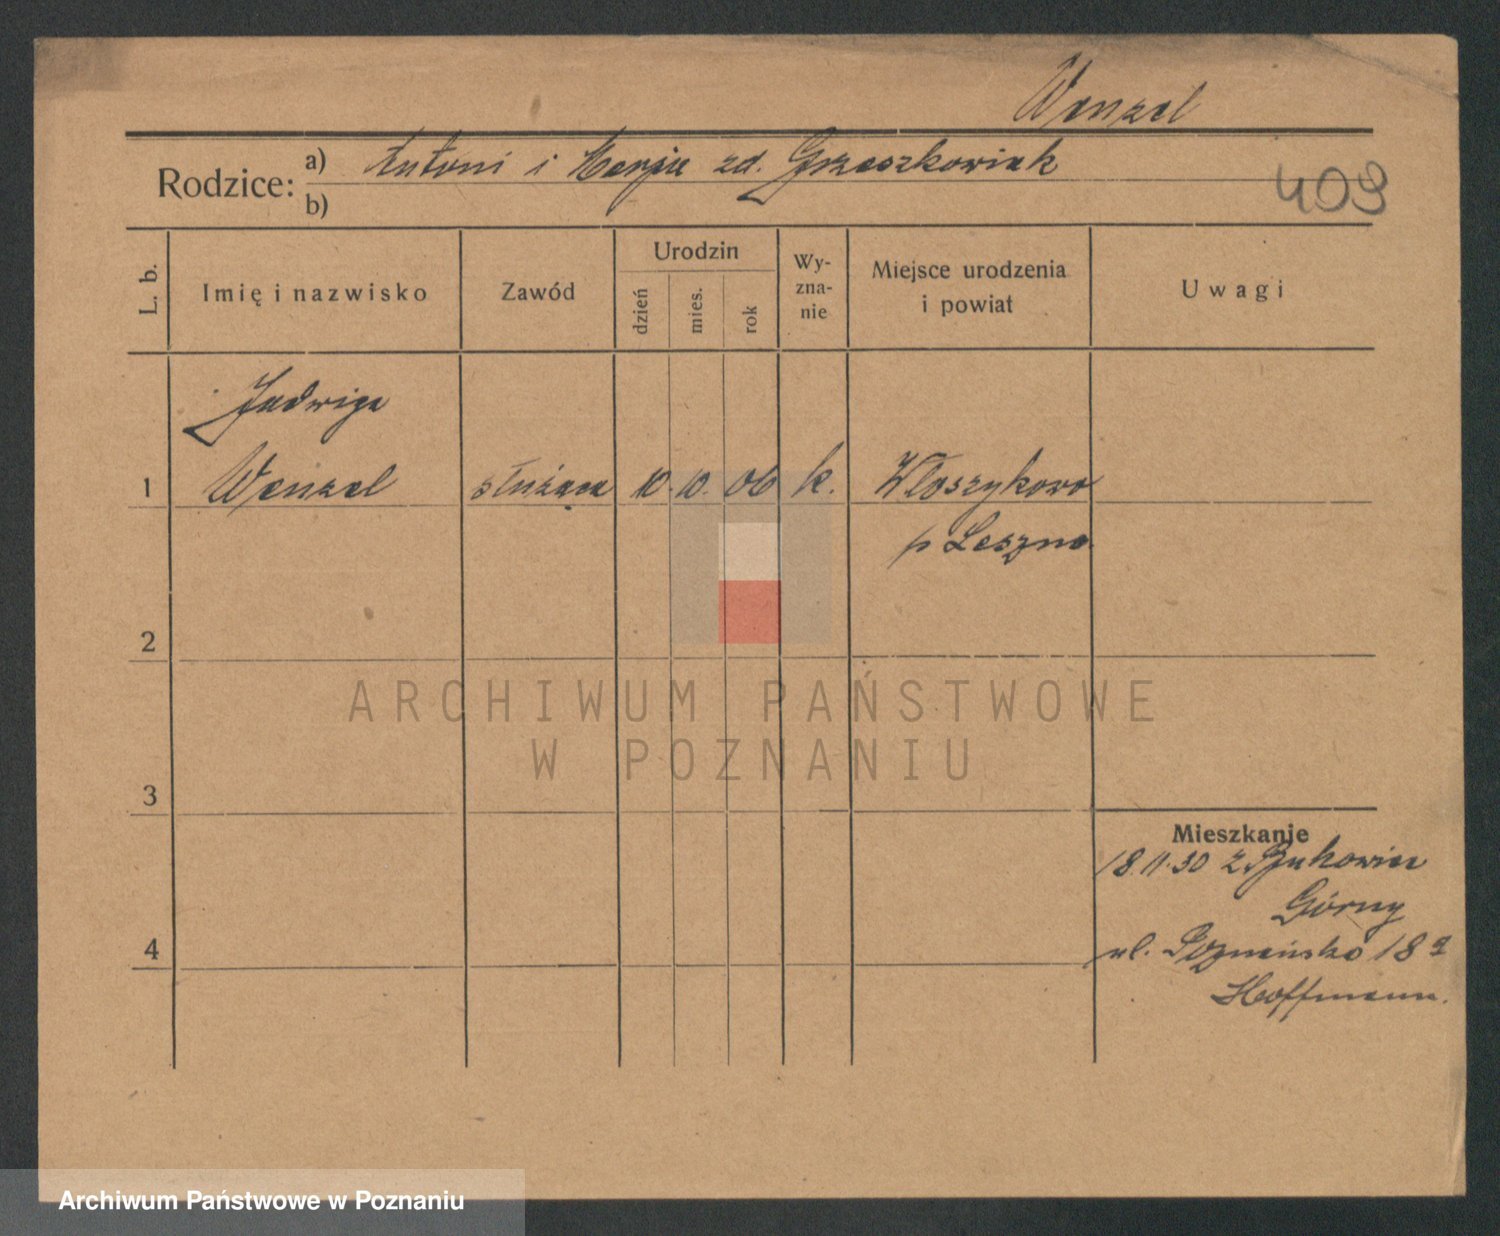 Wenzel
Rodzice: a) Antoni i Marja zd. Grzeszkowiak
b)
409
L. b.
Imię i nazwisko
Zawód
Urodzin
dzień
mies.
rok
Wy-
zna-
nie
Miejsce urodzenia
i powiat
Uwagi
Jadwiga
1 Wenzel służąca 10. 10. 06 k. Włoszykowo
p Leszno
2
ARCHIWUM PAŃSTWOWE
W POZNANIU
3
Mieszkanie
18.11.30 z Bukowiec
Górny
4
ul. Poznańska 18
Hoffmann.
Archiwum Państwowe w Poznaniu